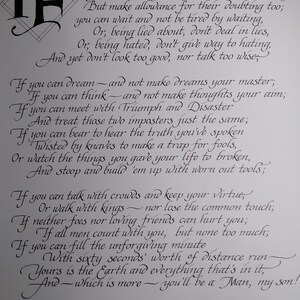 IF
But make allowance for their doubting too;
you can wait and not be tired by waiting,
Or, being lied about, don't deal in lies,
Or, being hated, don't give way to hating,
And yet don't look too good, nor talk too wise;
If you can dream — and not make dreams your master;
If you can think — and not make thoughts your aim;
If you can meet with Triumph and Disaster
And treat those two imposters just the same;
If you can bear to hear the truth you've spoken
Twisted by knaves to make a trap for fools,
Or watch the things you gave your life to broken,
And stoop and build 'em up with worn out tools;
If you can talk with crowds and keep your virtue,
Or walk with kings — nor lose the common touch;
If neither foes nor loving friends can hurt you;
If all men count with you, but none too much;
If you can fill the unforgiving minute
With sixty seconds' worth of distance run —
Yours is the Earth and everything that's in it,
And — which is more — you'll be a Man, my son!